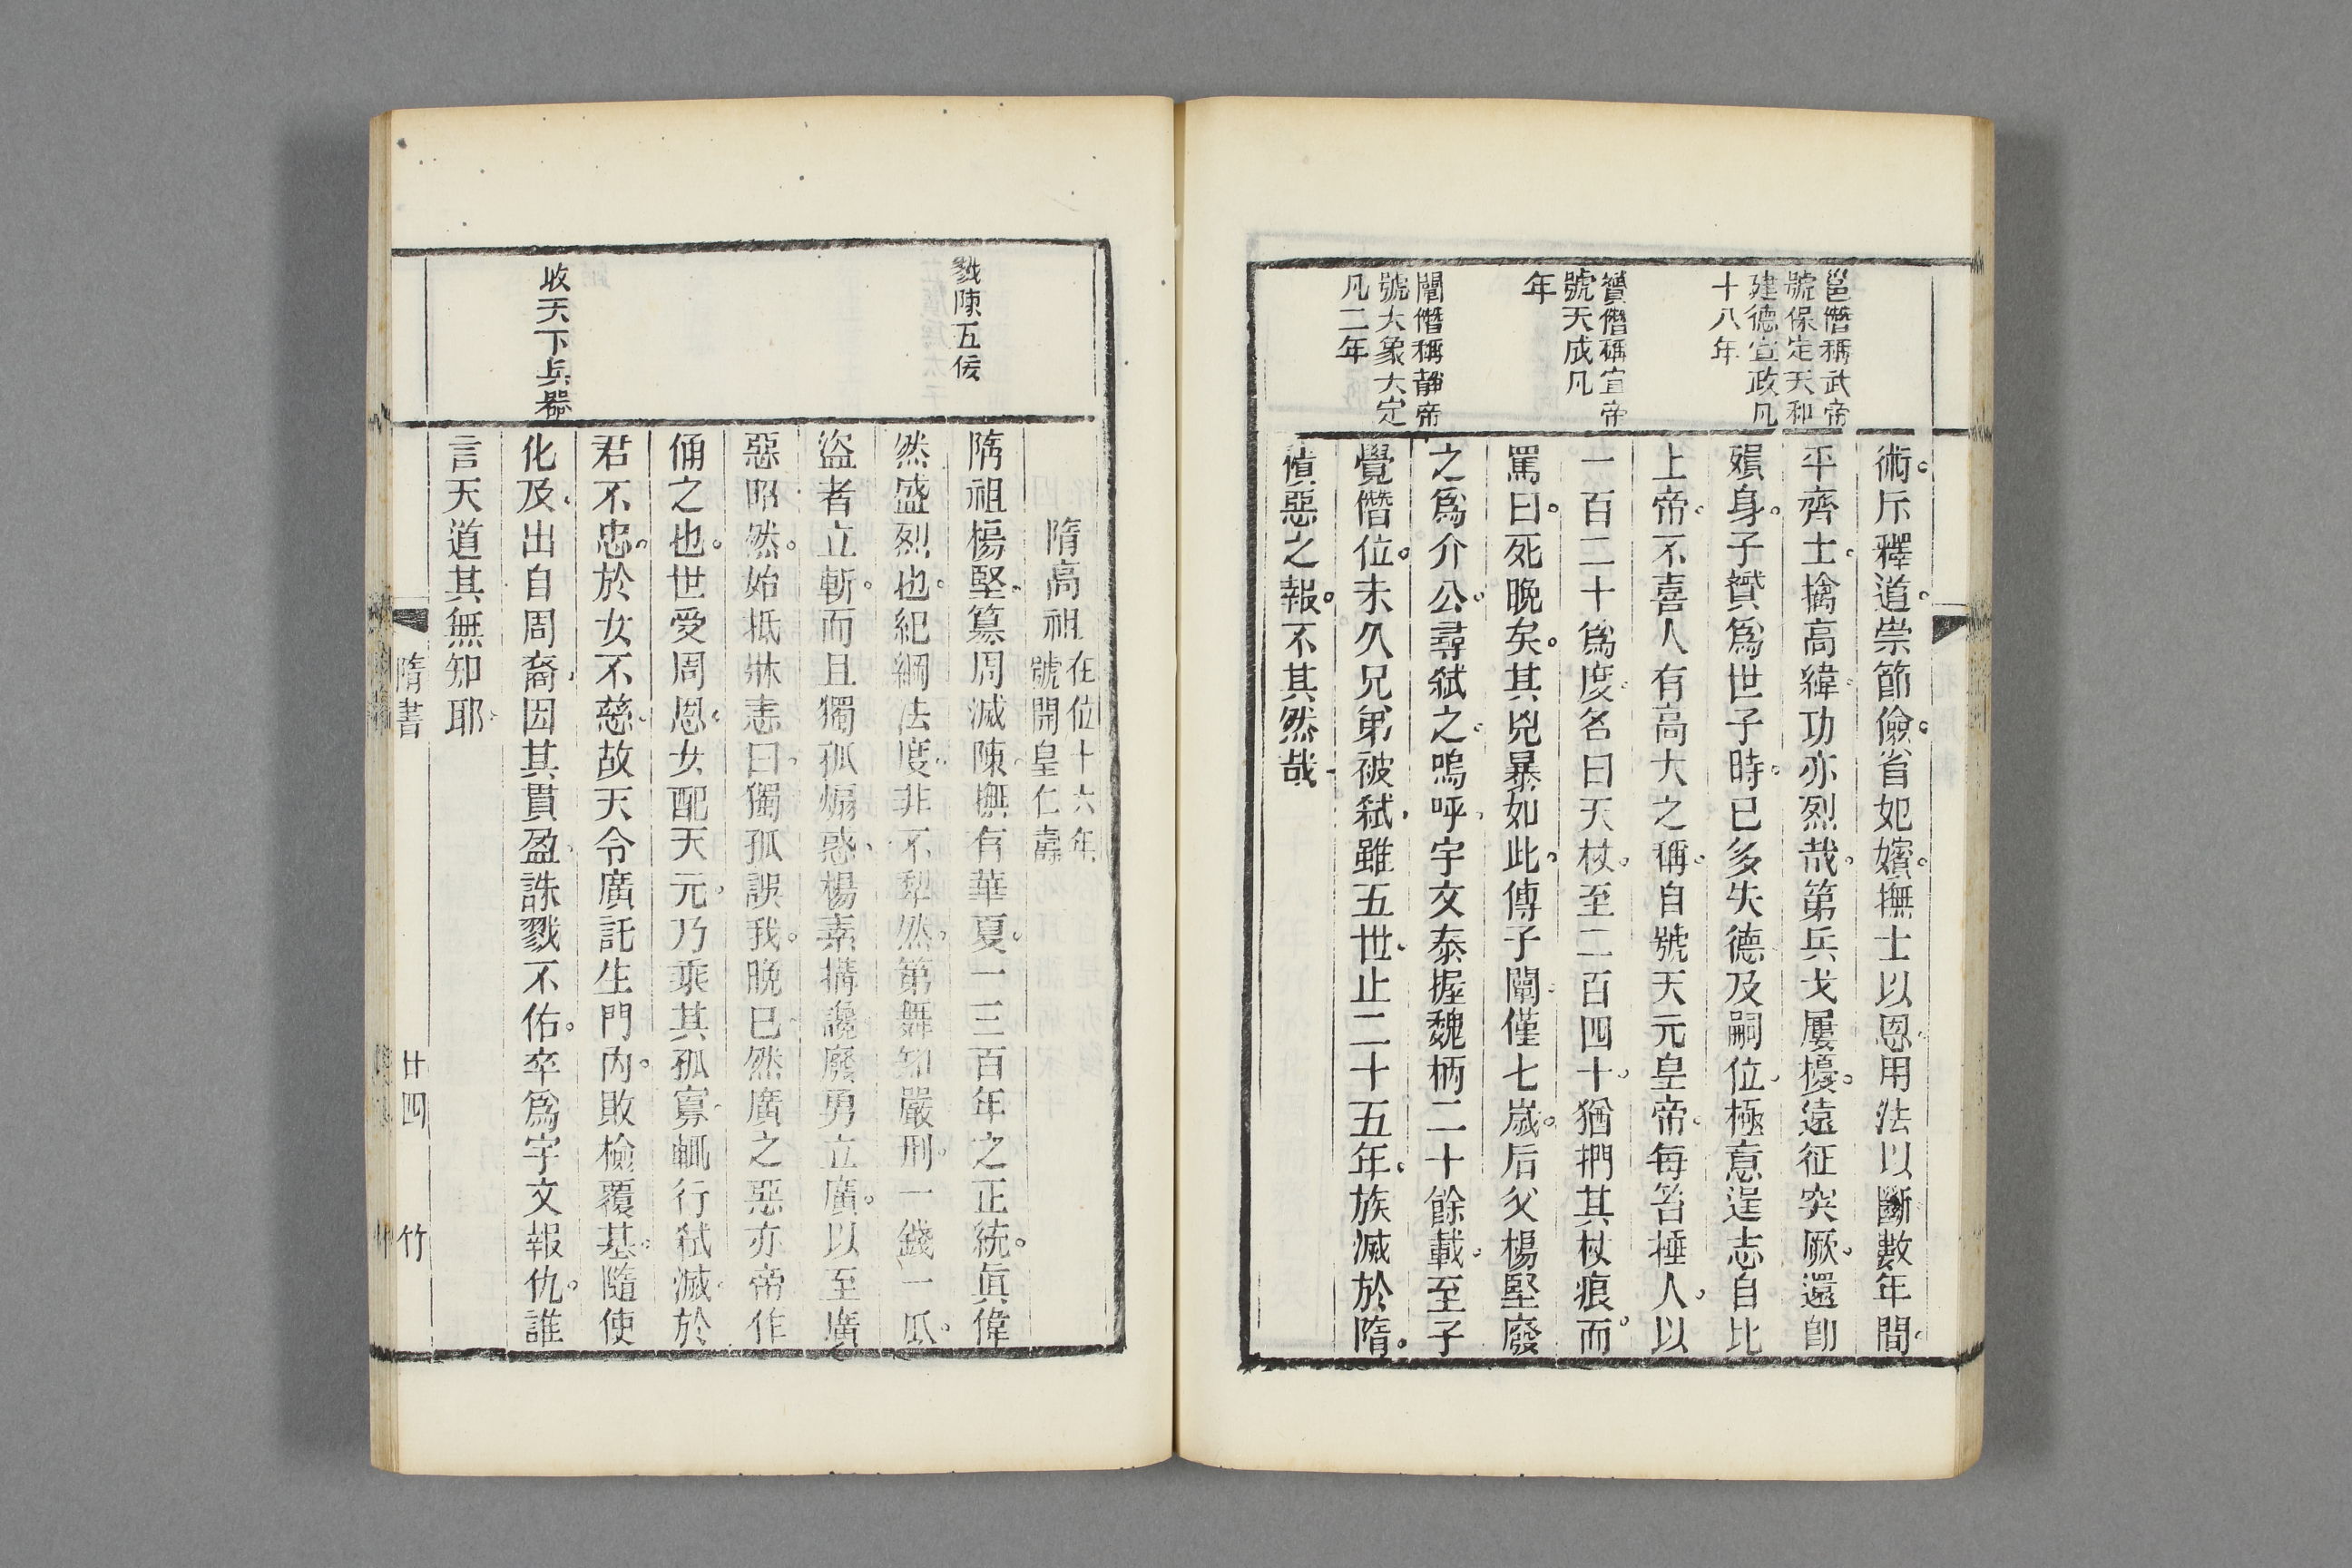 邕僭稱武帝
號保定天和
建德宣政凡
十八年
贇僭稱宣帝
號天成凡
年
闡僭稱靜帝
號大象大定
凡二年
術。斥釋道。崇節儉。省妃嬪。撫士以恩。用法以斷。數年間。
平齊土。擒高緯。功亦烈哉。第兵戈屢擾。遠征突厥。還卽
殞身。子贇爲世子時。已多失德。及嗣位。極意逞志。自比
上帝。不喜人有高大之稱。自號天元皇帝。每笞捶人。以
一百二十爲度。名曰天杖。至二百四十。猶捫其杖痕。而
罵曰。死晚矣。其兇暴如此。傳子闡。僅七歲。后父楊堅廢
之爲介公。尋弑之。嗚呼。宇文泰握魏柄二十餘載。至子
覺僭位。未久兄弟被弑。雖五世。止二十五年。族滅於隋。
僨惡之報。不其然哉
戮陳五佞
收天下兵器
隋高祖
在位十六年
號開皇仁壽
隋祖楊堅。篡周滅陳。撫有華夏。一三百年之正統。眞偉
然盛烈也。紀綱法度。非不犁然。第舞知嚴刑。一錢一瓜。
盜者立斬。而且獨孤煽惑。楊素搆讒。廢勇立廣。以至廣
惡昭然。始抵牀恚曰。獨孤誤我。晚已。然廣之惡。亦帝作
俑之也。世受周恩。女配天元。乃乘其孤寡。輒行弑滅。於
君不忠。於女不慈。故天令廣託生門內。敗檢覆基。隨使
化及。出自周裔。因其貫盈。誅戮不佑。卒爲宇文報仇。誰
言天道其無知耶。
隋書
廿四
竹